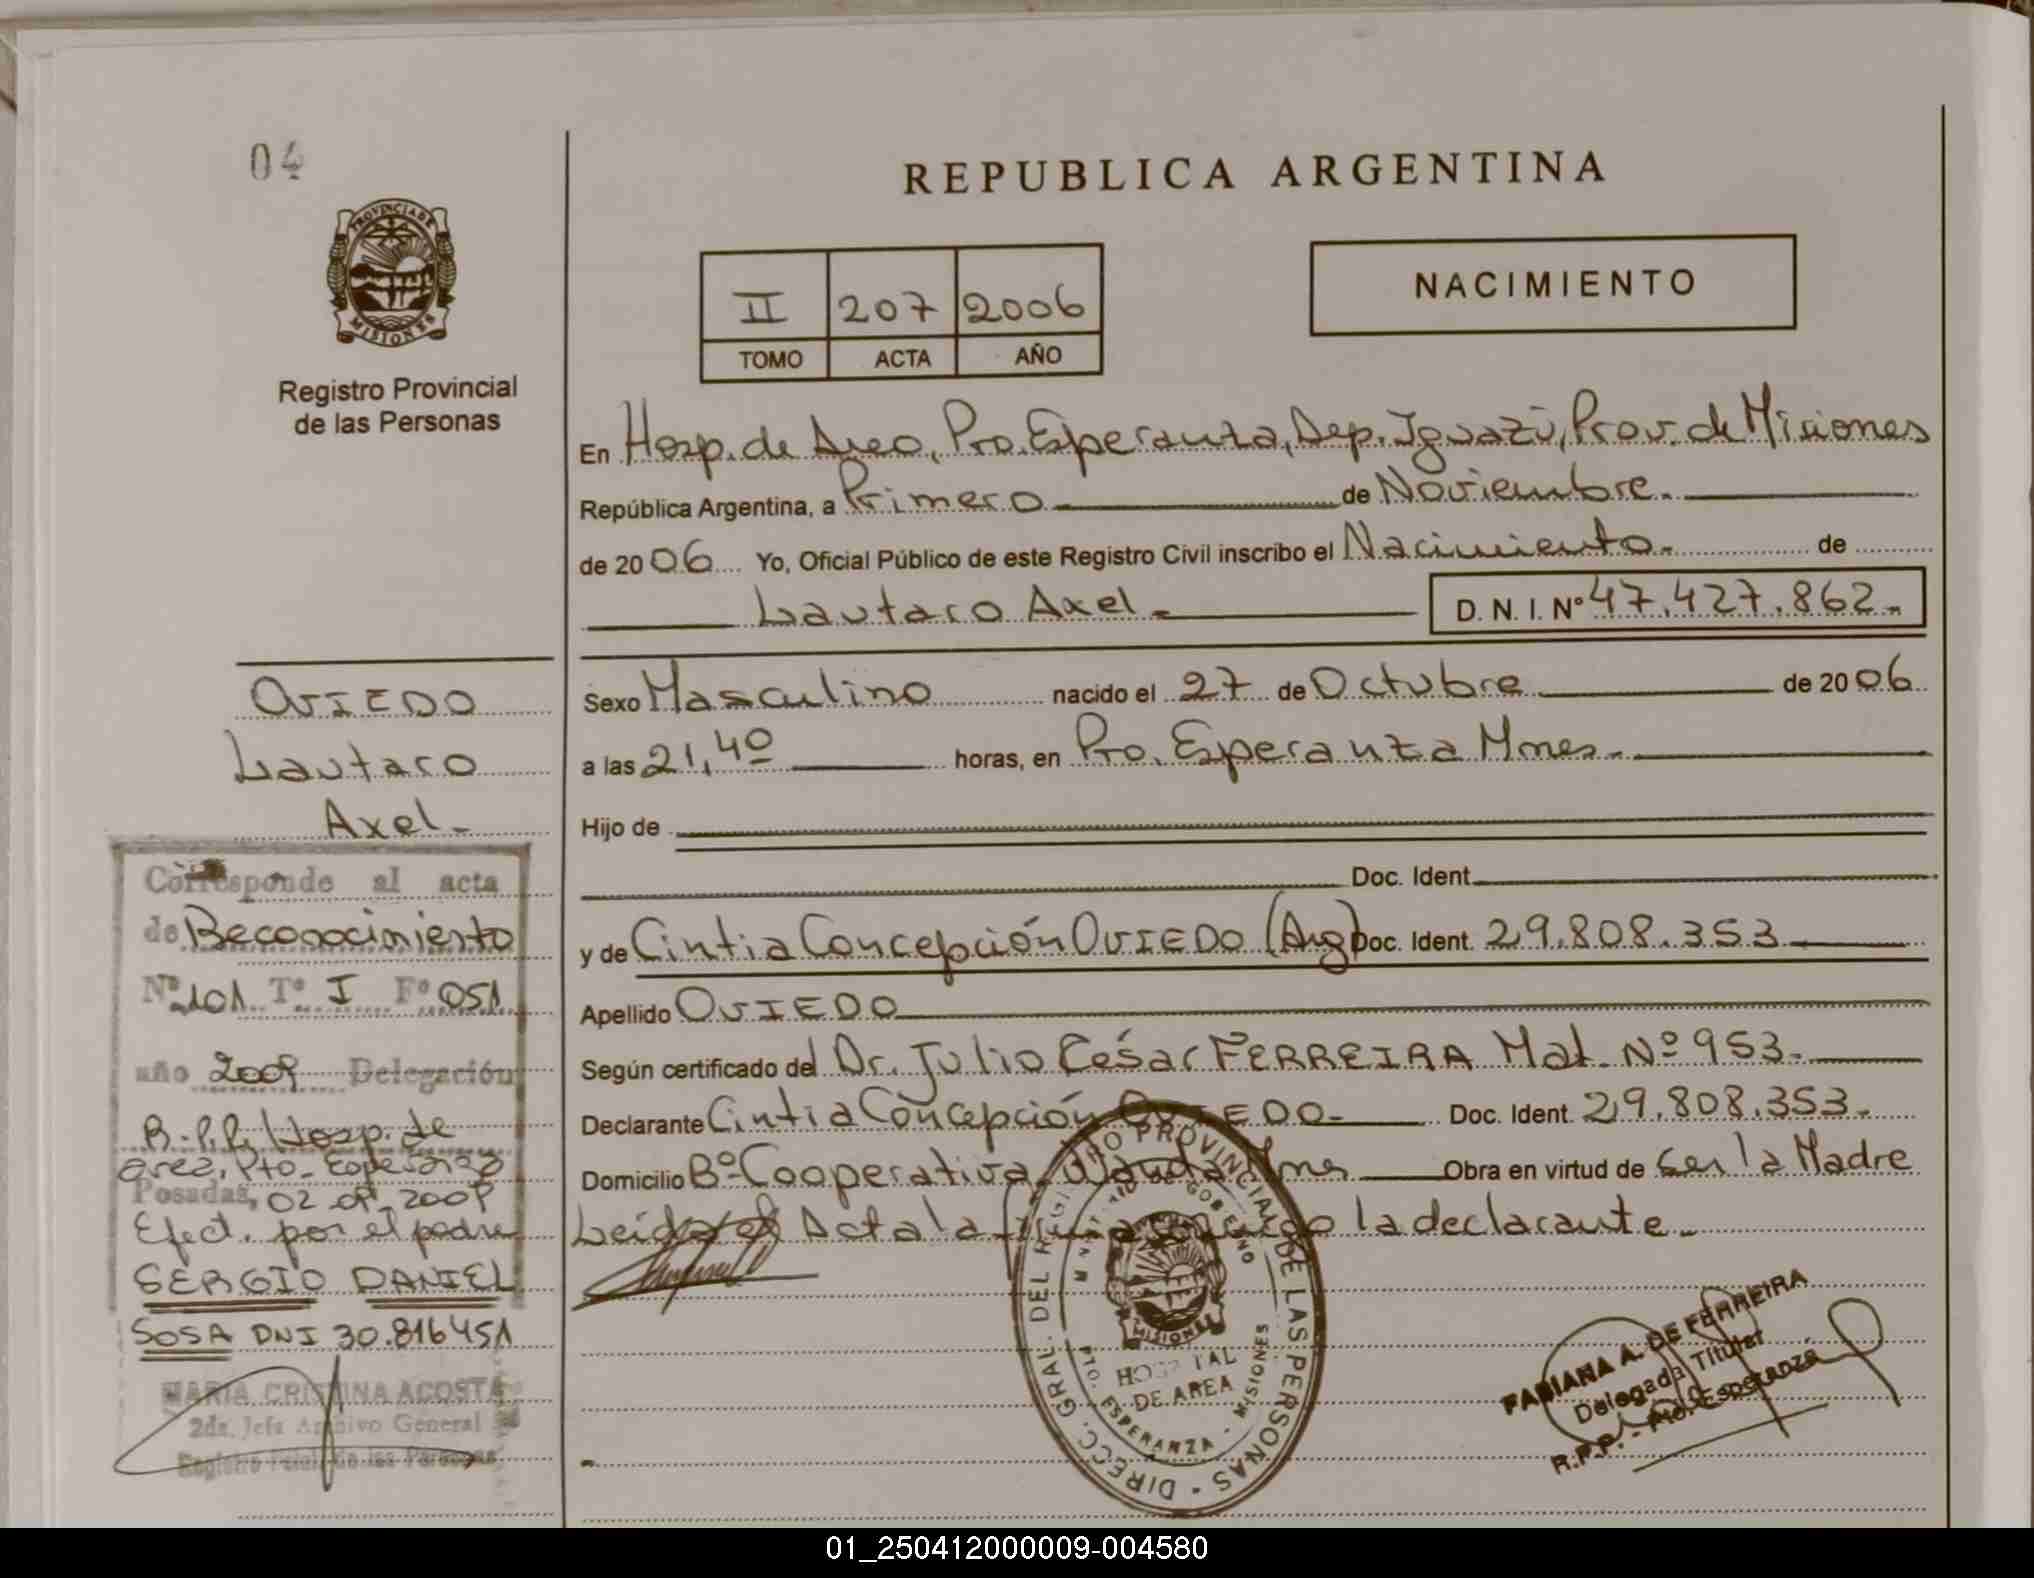 04
PROVINCIA DE
MISIONES
Registro Provincial
de las Personas
REPUBLICA ARGENTINA
II 207 2006
TOMO ACTA AÑO
NACIMIENTO
En Hosp. de Area, Pto. Esperanza, Dep. Iguazú, Prov. de Misiones
República Argentina, a Primero de Noviembre.
de 2006 Yo, Oficial Público de este Registro Civil inscribo el Nacimiento. de
Lautaro Axel. D. N. I. Nº 47.427.862.
Sexo Masculino nacido el 27 de Octubre de 2006
a las 21,40 horas, en Pto. Esperanza Mnes.
Hijo de
Doc. Ident.
y de Cintia Concepción OVIEDO (Arg) Doc. Ident. 29.808.353
Apellido OVIEDO
Según certificado del Dr. Julio César FERREIRA Mat. Nº 953.
Declarante Cintia Concepción OVIEDO. Doc. Ident. 29.808.353.
Domicilio Bº Cooperativa, Wanda Mnes Obra en virtud de ser la Madre
Leída el Acta la firma conmigo la declarante.
OVIEDO
Lautaro
Axel.
Corresponde al acta
de Reconocimiento
Nº 101 Tº I Fº 051
año 2009 Delegación
R.P.P. Hosp. de
area, Pto. Esperanza
Posadas, 02.09.2009
Efect. por el padre
SERGIO DANIEL
SOSA DNI 30.816451
MARIA CRISTINA ACOSTA
2da. Jefa Archivo General
Registro Pcial. de las Personas
DIRECC. GRAL. DEL REGISTRO PROVINCIAL DE LAS PERSONAS
MINISTERIO DE GOBIERNO
MISIONES
HOSPITAL
DE AREA
PTO. ESPERANZA - MISIONES
FABIANA A. DE FERREIRA
Delegada Titular
R.P.P. - Pto. Esperanza
01_250412000009-004580